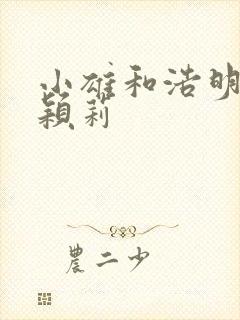 小雄和浩明
穎莉
農二少